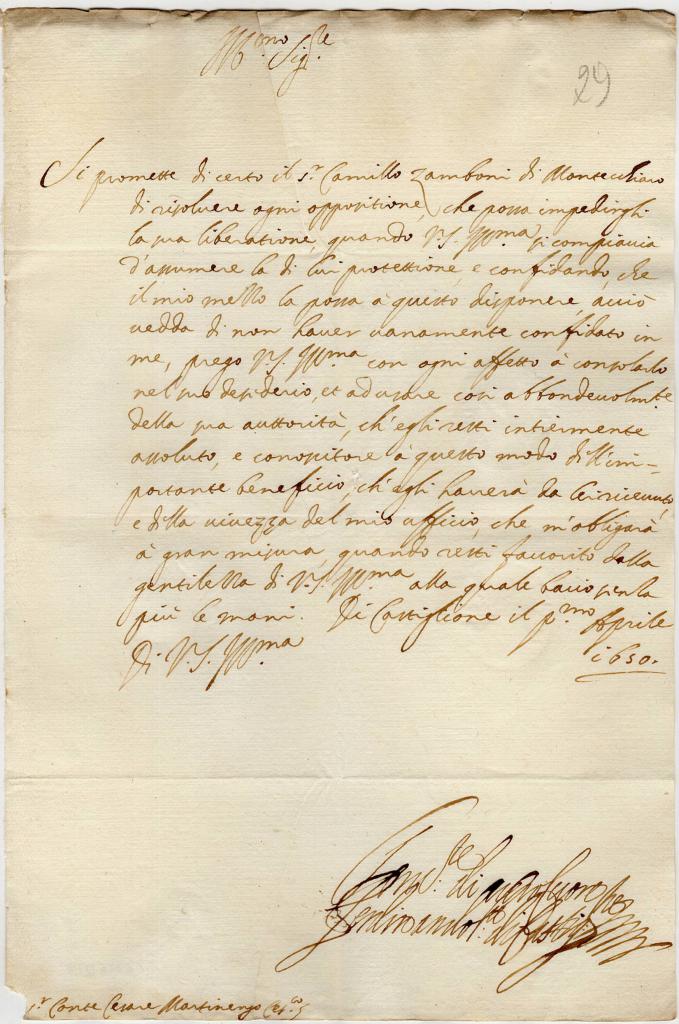 Ill.mo Sig.re
29
Si promette di certo il s.r Camillo Zamboni di Montechiaro
di risoluere ogni oppositione, che possa impedirgli
la sua liberatione, quando V.S. Ill.ma si compiaccia
d'assumere la di lui protettione, e confidando, che
il mio mezzo la possa à questo disponere, acciò
uedda di non hauer uanamente confidato in
me, prego V.S. Ill.ma con ogni affetto à consolarlo
nel suo desiderio, et ad usare così abbondeuolm.te
della sua auttorità, ch'egli resti intieramente
assoluto, e conoscitore à questo modo dell'im-
portante beneficio, ch'egli hauerà da lei riceuuto,
e della uiuezza del mio ufficio, che m'obligarà
à gran misura, quando resti fauorito dalla
gentilezza di V.S. Ill.ma alla quale bacio per la
più le mani. Di Castiglione il p.mo Aprile
1650.
Di V.S. Ill.ma
s.r Conte Cesare Martinengo